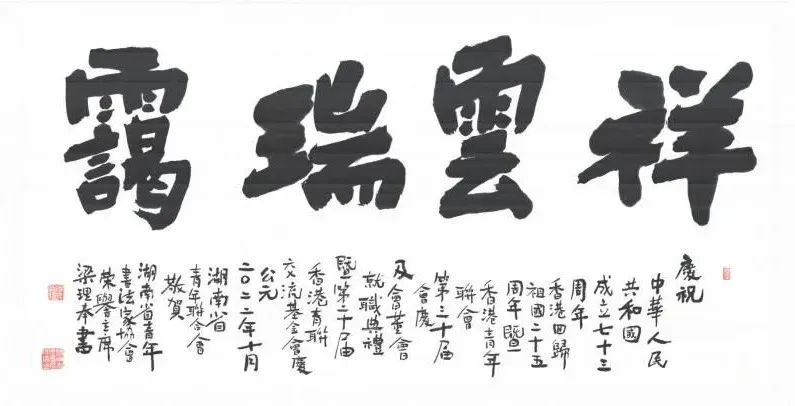 祥雲瑞靄
慶祝
中華人民
共和國
成立七十三
周年
香港回歸
祖國二十五
周年暨
香港青年
聯會
第三十屆
會慶
及會董會
就職典禮
暨第二十屆
香港青聯
交流基金會慶
公元
二〇二二年十月
湖南省
青年聯合會
敬賀
湖南省青年
書法家協會
榮譽主席
梁理奉書